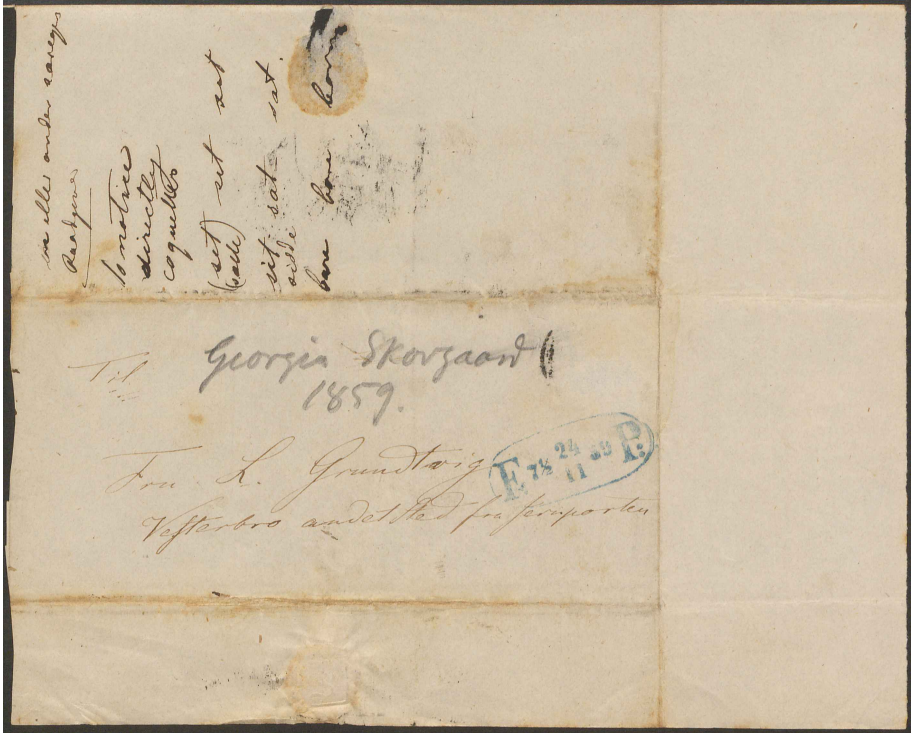 en eller anden særegen
Raadgiver
to notice
directly
coquettes
(set) set sat
(satte)
sit sat sat.
sidde
bare bore borne
Georgia Skovgaard
1859.
Til
Fru L. Grundtvig
Vesterbro andet Sted fra Jernporten
F. 7½ 24 59 P.
11